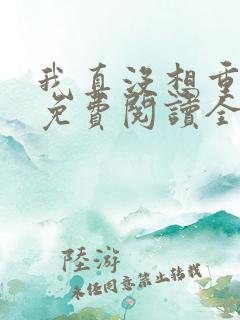 我真沒想重
免費閱讀全
陸游
未經同意禁止轉載